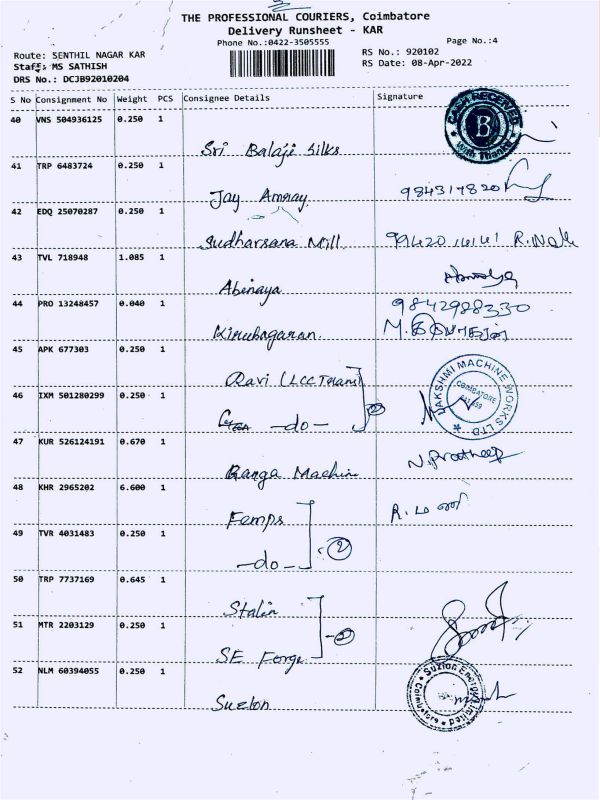 THE PROFESSIONAL COURIERS, Coimbatore
Delivery Runsheet - KAR
Phone No.:0422-3505555
Page No.:4
Route: SENTHIL NAGAR KAR
RS No.: 920102
Staff: MS SATHISH
RS Date: 08-Apr-2022
DRS No.: DCJB92010204
S No Consignment No Weight PCS Consignee Details Signature
40 VNS 504936125 0.250 1
Sri Balaji Silks
CASH RECEIVED With Thanks B
41 TRP 6483724 0.250 1
Jay Amray 9843174820
42 EDQ 25070287 0.250 1
Sudharsana Mill 99420 16161
43 TVL 718948 1.085 1
Abinaya
44 PRO 13248457 0.040 1
Kirubagaran 9842988330
45 APK 677303 0.250 1
Ravi (LCC Trans)
LAKSHMI MACHINE WORKS LTD COIMBATORE
46 IXM 501280299 0.250 1
-do-
47 KUR 526124191 0.670 1
Ranga Machine N. Pratheep
48 KHR 2965202 6.600 1
Femps
49 TVR 4031483 0.250 1
-do- 2
50 TRP 7737169 0.645 1
Stalin
51 MTR 2203129 0.250 1
SE Forge
52 NLM 60394055 0.250 1
Suzlon
Suzlon Energy Limited Coimbatore